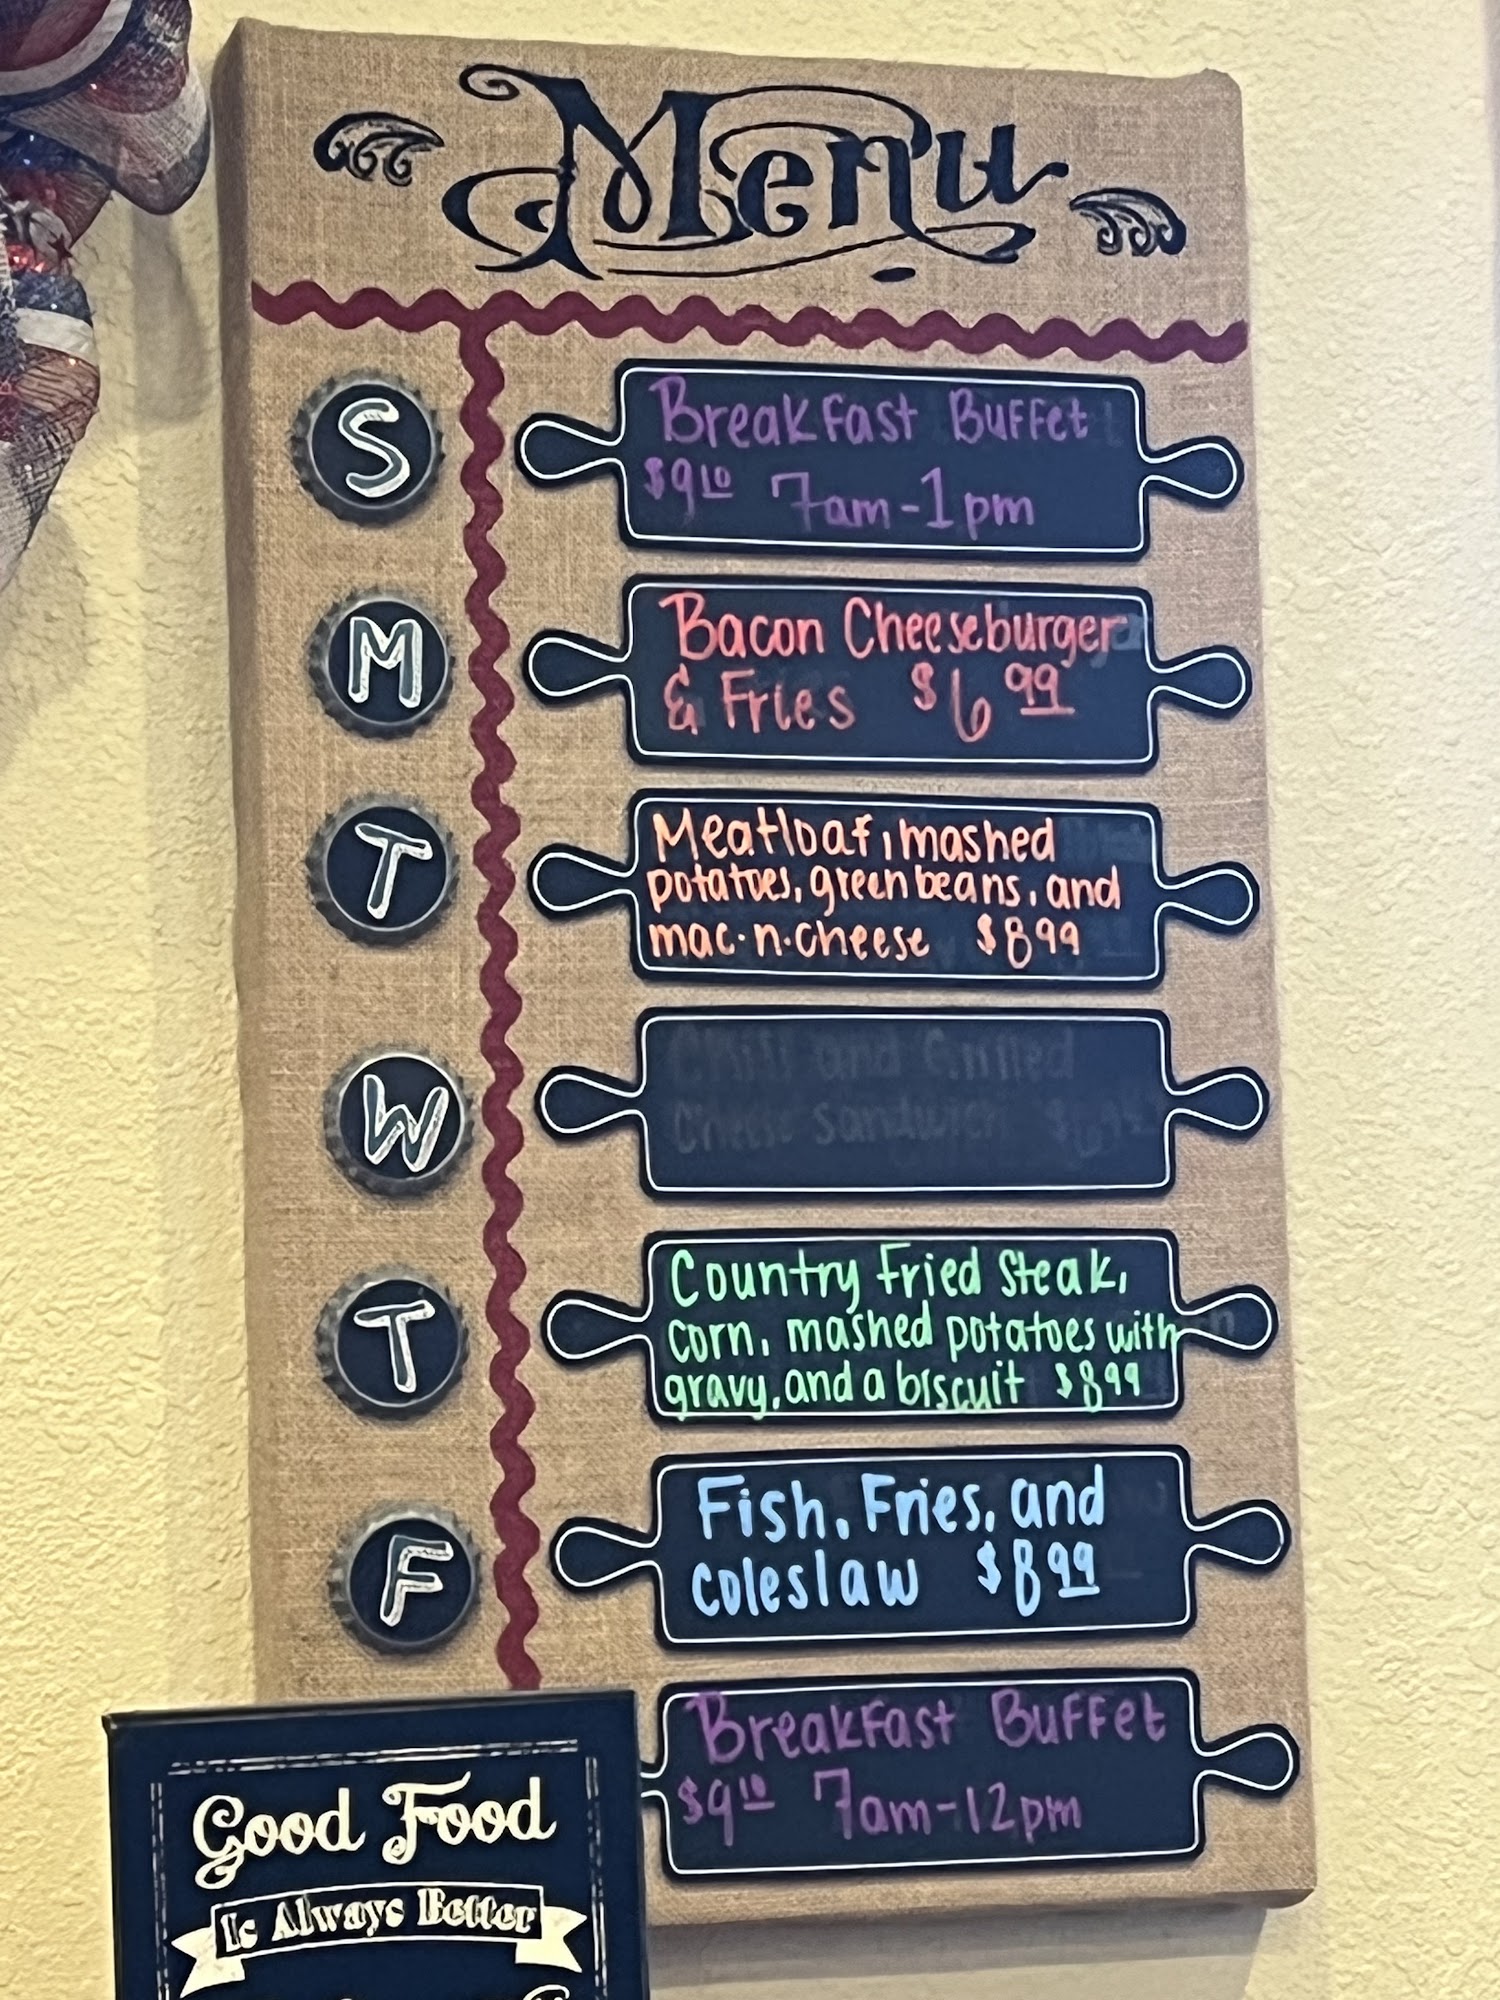 Menu
S
Breakfast Buffet
$9.10 7am-1pm
M
Bacon Cheeseburger
& Fries $6.99
T
Meatloaf, mashed
potatoes, green beans, and
mac-n-cheese $8.99
W
Chili and Grilled
Cheese Sandwich
T
Country Fried Steak,
corn, mashed potatoes with
gravy, and a biscuit $8.99
F
Fish, Fries, and
coleslaw $8.99
Breakfast Buffet
$9.10 7am-12pm
Good Food
Is Always Better